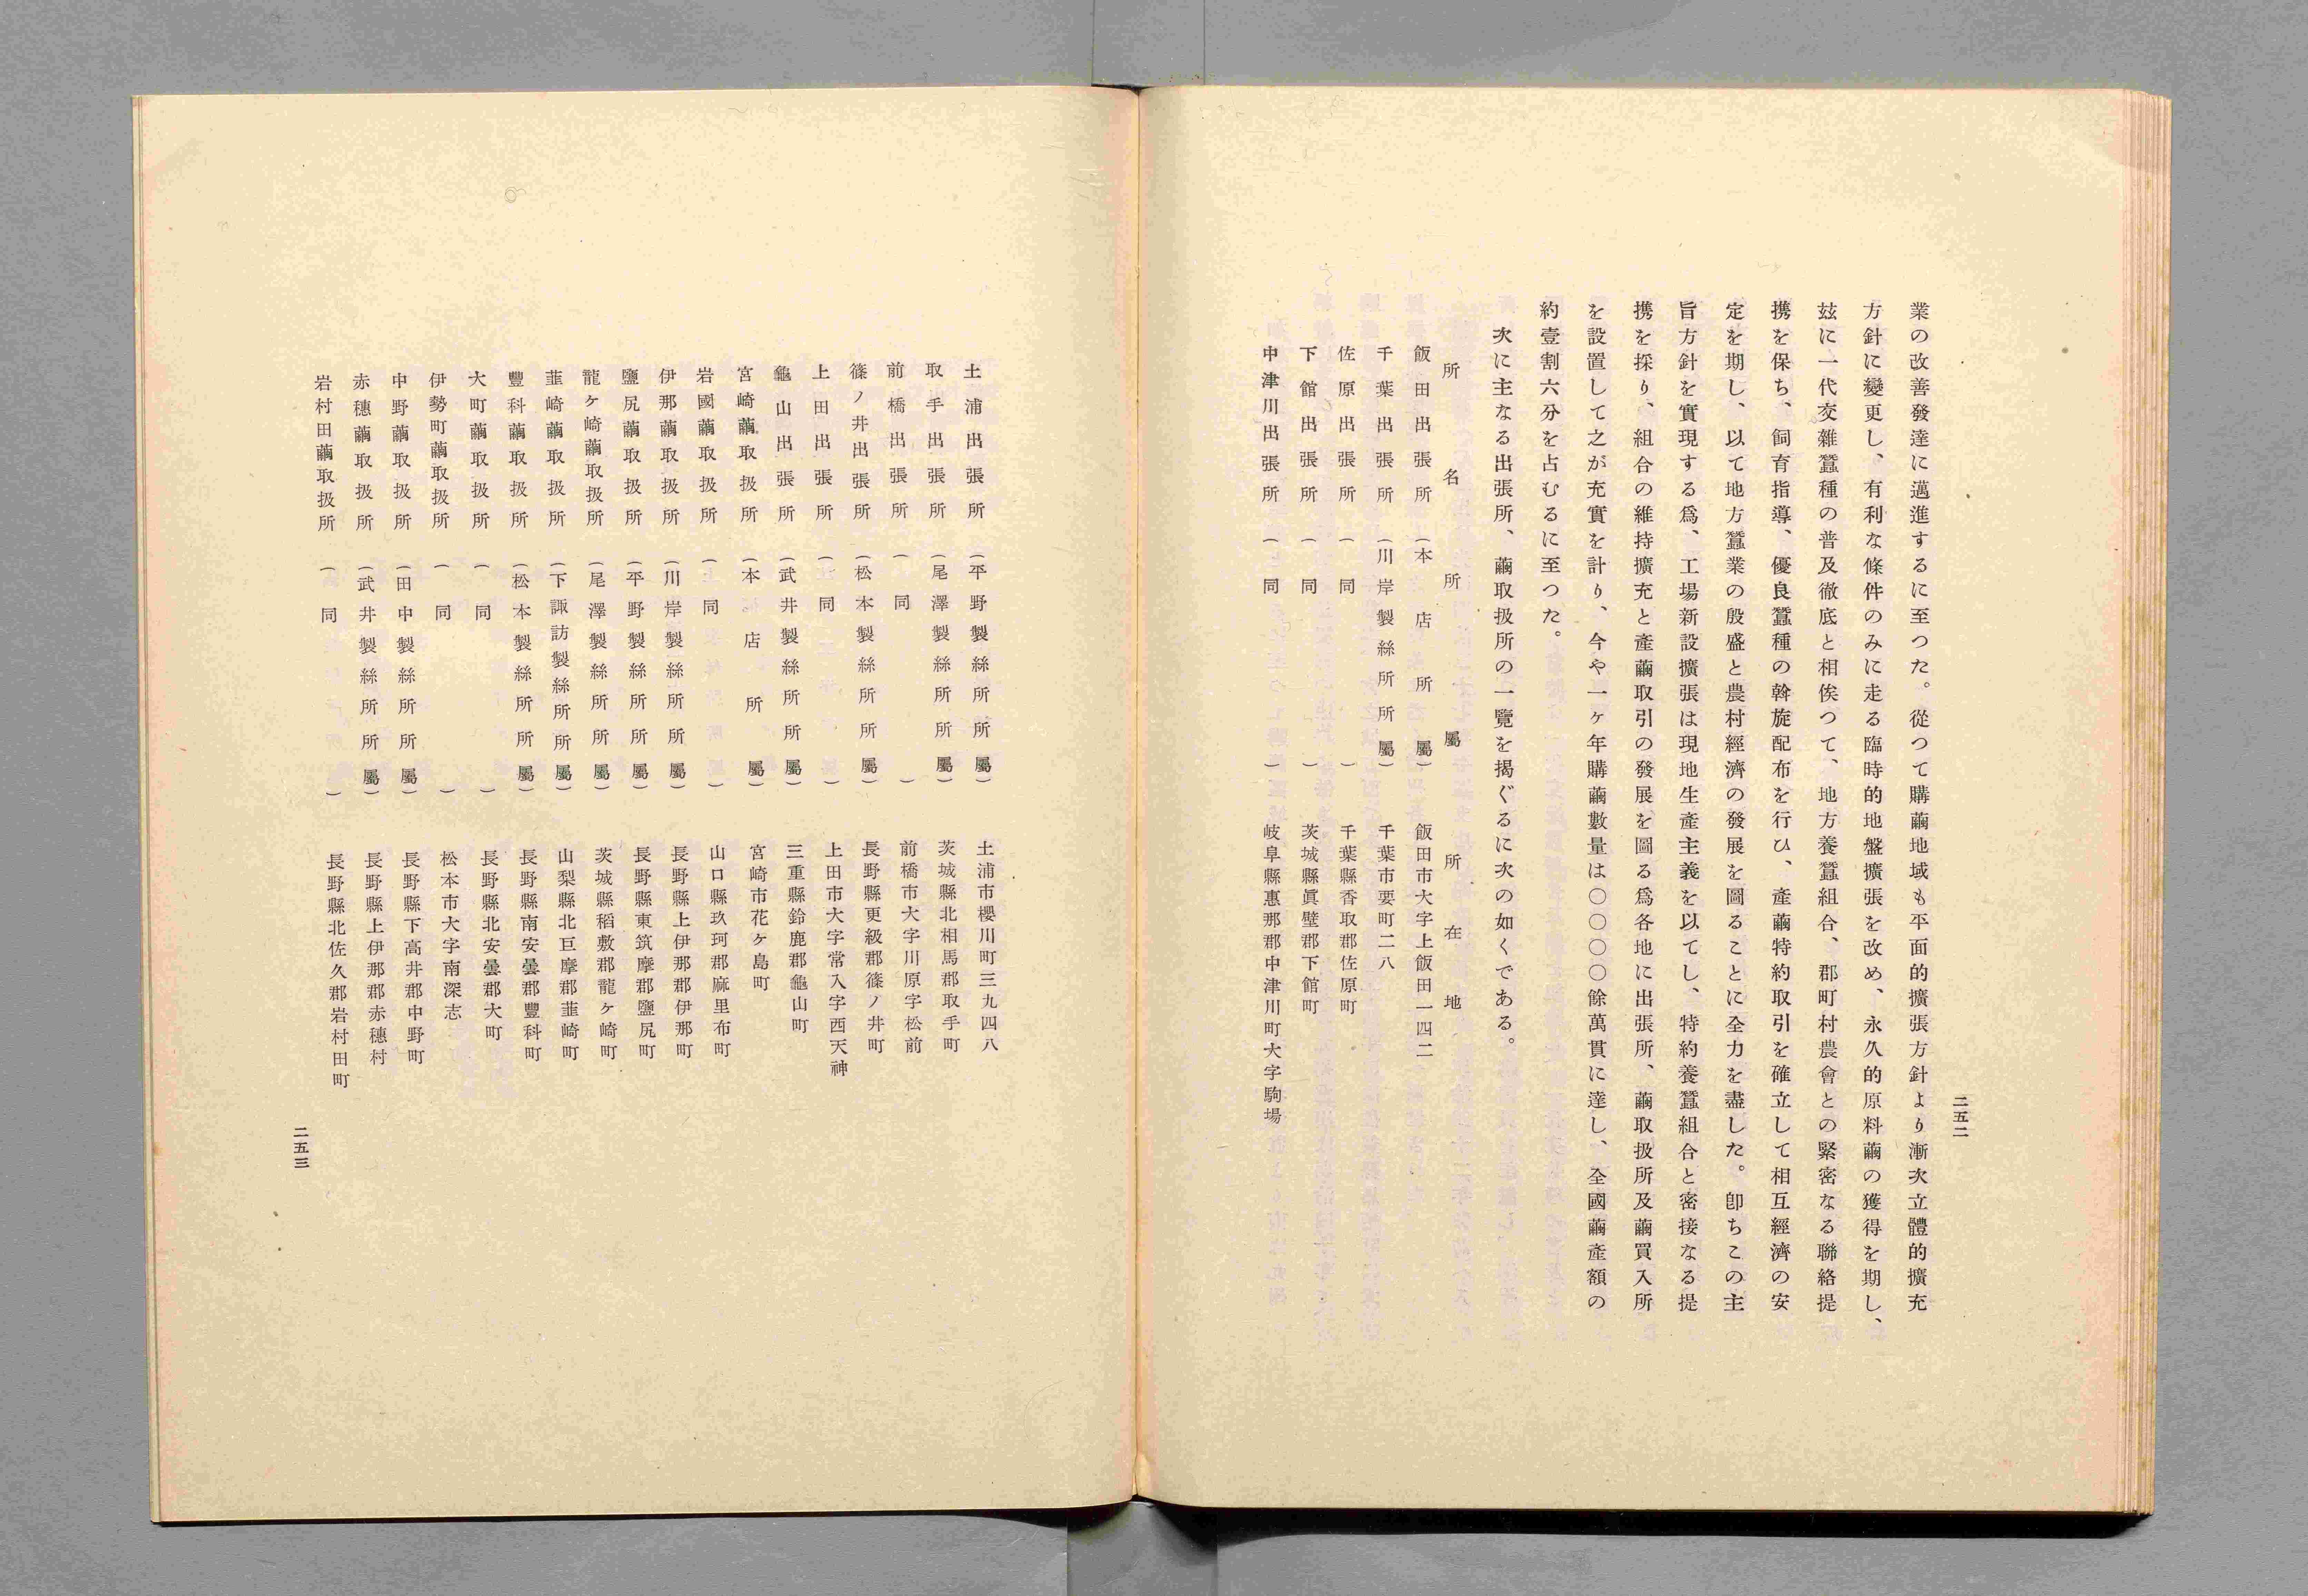 二五二
業の改善發達に邁進するに至つた。從つて購繭地域も平面的擴張方針より漸次立體的擴充
方針に變更し、有利な條件のみに走る臨時的地盤擴張を改め、永久的原料繭の獲得を期し、
玆に一代交雜蠶種の普及徹底と相俟つて、地方養蠶組合、郡町村農會との緊密なる聯絡提
携を保ち、飼育指導、優良蠶種の斡旋配布を行ひ、產繭特約取引を確立して相互經濟の安
定を期し、以て地方蠶業の殷盛と農村經濟の發展を圖ることに全力を盡した。卽ちこの主
旨方針を實現する爲、工場新設擴張は現地生產主義を以てし、特約養蠶組合と密接なる提
携を採り、組合の維持擴充と產繭取引の發展を圖る爲各地に出張所、繭取扱所及繭買入所
を設置して之が充實を計り、今や一ヶ年購繭數量は〇〇〇〇〇餘萬貫に達し、全國繭產額の
約壹割六分を占むるに至つた。
次に主なる出張所、繭取扱所の一覽を揭ぐるに次の如くである。
所名 所屬 所在地
飯田出張所 (本店所屬) 飯田市大字上飯田一四二
千葉出張所 (川岸製絲所所屬) 千葉市要町二八
佐原出張所 (同) 千葉縣香取郡佐原町
下館出張所 (同) 茨城縣眞壁郡下館町
中津川出張所 (同) 岐阜縣惠那郡中津川町大字駒場
土浦出張所 (平野製絲所所屬) 土浦市櫻川町三九四八
取手出張所 (尾澤製絲所所屬) 茨城縣北相馬郡取手町
前橋出張所 (同) 前橋市大字川原字松前
篠ノ井出張所 (松本製絲所所屬) 長野縣更級郡篠ノ井町
上田出張所 (同) 上田市大字常入字西天神
龜山出張所 (武井製絲所所屬) 三重縣鈴鹿郡龜山町
宮崎繭取扱所 (本店所屬) 宮崎市花ヶ島町
岩國繭取扱所 (同) 山口縣玖珂郡麻里布町
伊那繭取扱所 (川岸製絲所所屬) 長野縣上伊那郡伊那町
鹽尻繭取扱所 (平野製絲所所屬) 長野縣東筑摩郡鹽尻町
龍ヶ崎繭取扱所 (尾澤製絲所所屬) 茨城縣稻敷郡龍ヶ崎町
韮崎繭取扱所 (下諏訪製絲所所屬) 山梨縣北巨摩郡韮崎町
豐科繭取扱所 (松本製絲所所屬) 長野縣南安曇郡豐科町
大町繭取扱所 (同) 長野縣北安曇郡大町
伊勢町繭取扱所 (同) 松本市大字南深志
中野繭取扱所 (田中製絲所所屬) 長野縣下高井郡中野町
赤穗繭取扱所 (武井製絲所所屬) 長野縣上伊那郡赤穗村
岩村田繭取扱所 (同) 長野縣北佐久郡岩村田町
二五三